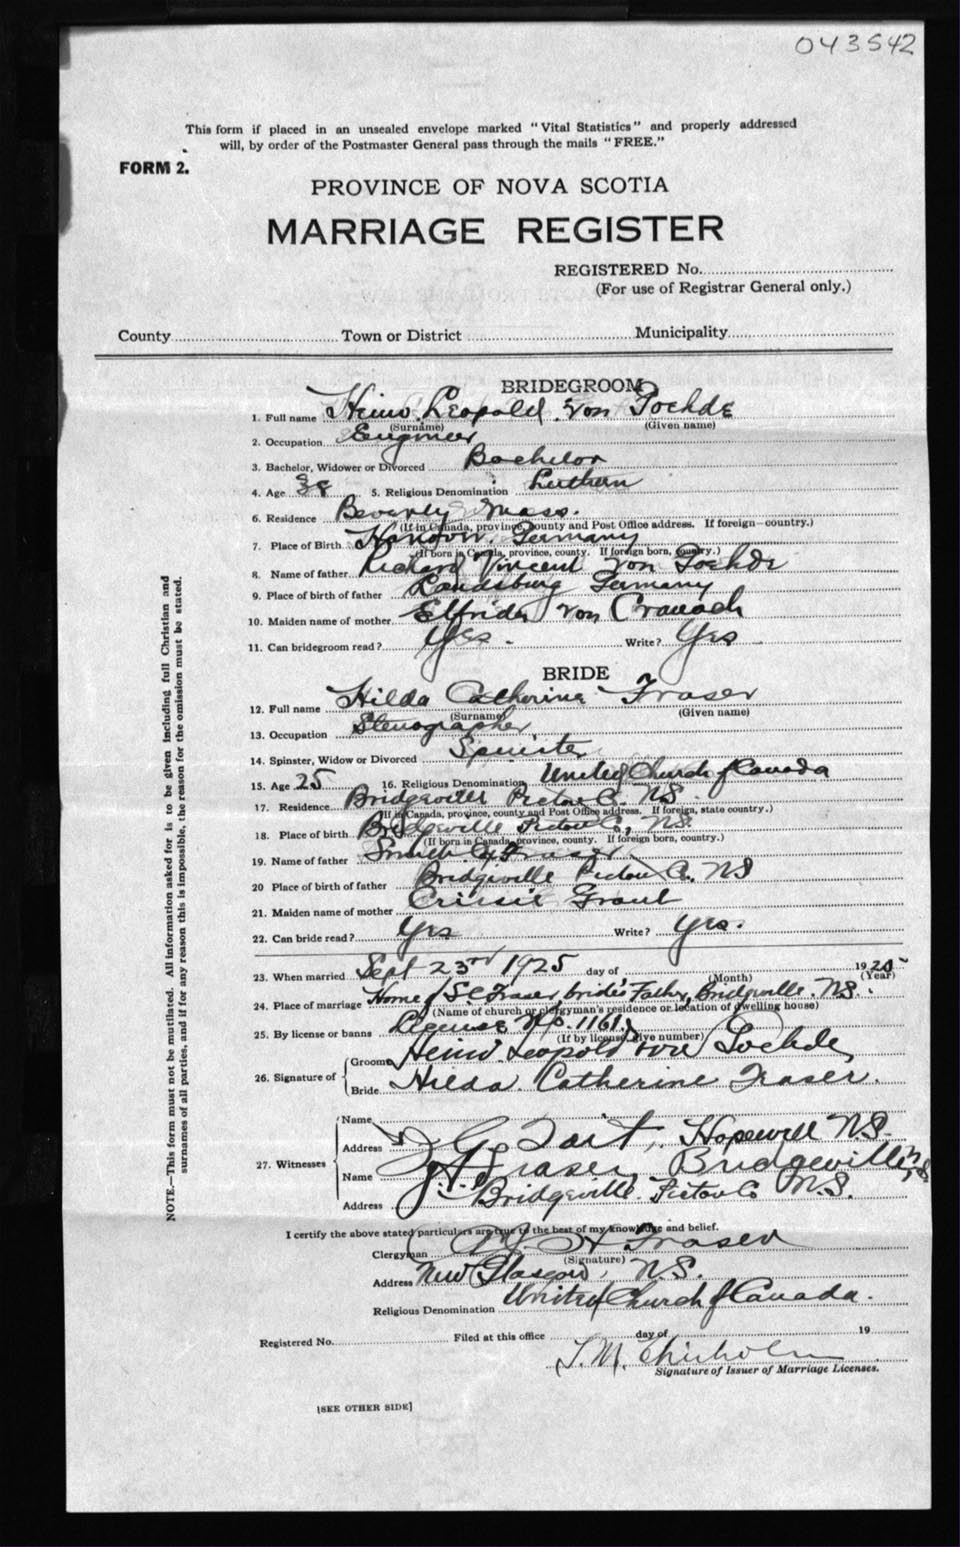 043542
This form if placed in an unsealed envelope marked "Vital Statistics" and properly addressed
will, by order of the Postmaster General pass through the mails "FREE."
FORM 2.
PROVINCE OF NOVA SCOTIA
MARRIAGE REGISTER
REGISTERED No.
(For use of Registrar General only.)
County Town or District Municipality
BRIDEGROOM
1. Full name Heino Leopold von Lochde
(Surname) (Given name)
2. Occupation Engineer
3. Bachelor, Widower or Divorced Bachelor
4. Age 38 5. Religious Denomination Luthern
6. Residence Beverly Mass.
(If in Canada, province, county and Post Office address. If foreign—country.)
7. Place of Birth Germany
(If born in Canada, province, county. If foreign born, country.)
8. Name of father Richard Vincent von Lochde
9. Place of birth of father Landsburg Germany
10. Maiden name of mother Elfrida von Cranach
11. Can bridegroom read? Yes. Write? Yes
BRIDE
12. Full name Hilda Catherine Fraser
(Surname) (Given name)
13. Occupation Stenographer
14. Spinster, Widow or Divorced Spinster
15. Age 25 16. Religious Denomination United Church of Canada
17. Residence Bridgeville Pictou Co. N.S.
(If in Canada, province, county and Post Office address. If foreign, state country.)
18. Place of birth Bridgeville Pictou Co., N.S.
(If born in Canada, province, county. If foreign born, country.)
19. Name of father Fraser
20 Place of birth of father Bridgeville Pictou Co. N S
21. Maiden name of mother Grant
22. Can bride read? Yrs Write? Yrs.
23. When married Sept 23rd 1925 day of 1925
(Month) (Year)
24. Place of marriage Home of S C Fraser, bride's Father, Bridgeville, N.S.
(Name of church or clergyman's residence or location of dwelling house)
25. By license or banns License No. 1161
(If by license, give number)
26. Signature of
Groom Heino Leopold von Lochde
Bride Hilda Catherine Fraser.
27. Witnesses
Name
Address J G Tait, Hopewell N.S.
Name J. A. Fraser, Bridgeville N.S
Address Bridgeville Pictou Co N.S.
I certify the above stated particulars are true to the best of my knowledge and belief.
Clergyman Fraser
(Signature)
Address New Glasgow, N.S.
Religious Denomination United Church of Canada.
Registered No. Filed at this office day of 19
T. M. Chisholm
Signature of Issuer of Marriage Licenses.
[SEE OTHER SIDE]
NOTE.—This form must not be mutilated. All information asked for is to be given including full Christian and
surnames of all parties, and if for any reason this is impossible, the reason for the omission must be stated.